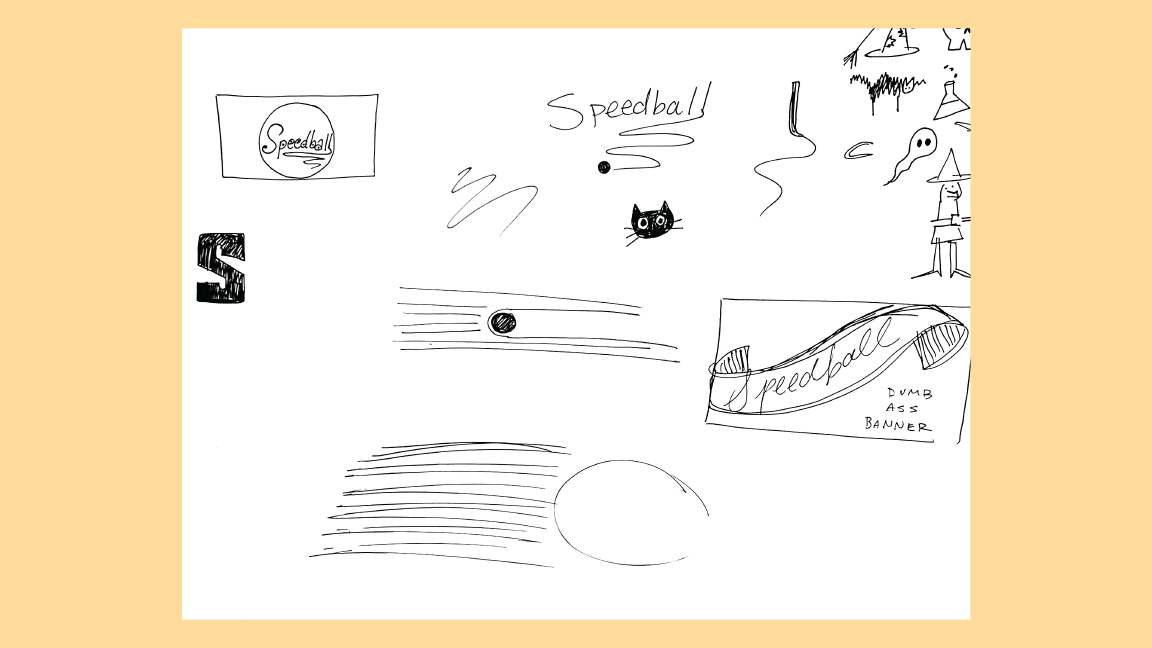 Speedball
Speedball
S
Speedball
DUMB
ASS
BANNER